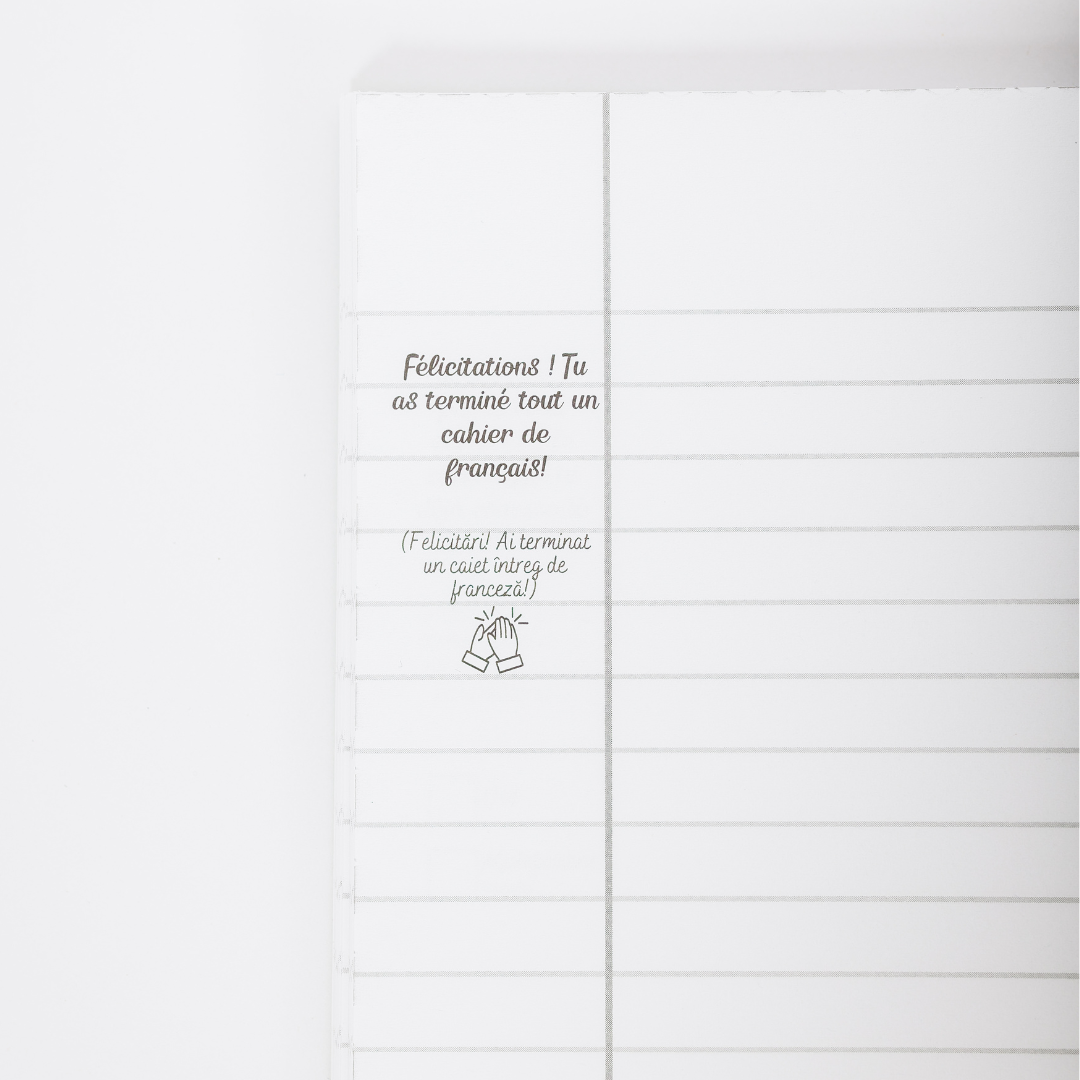 Félicitations ! Tu
as terminé tout un
cahier de
français!
(Felicitări! Ai terminat
un caiet întreg de
franceză!)